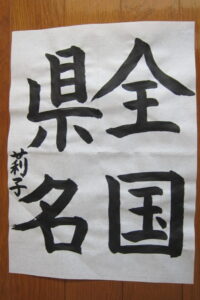 全国
県名
莉子